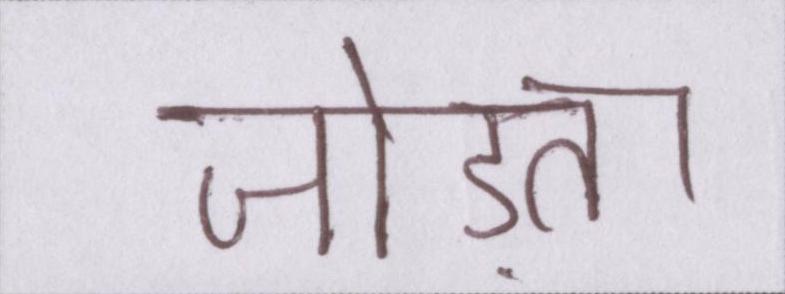 जोड़ता